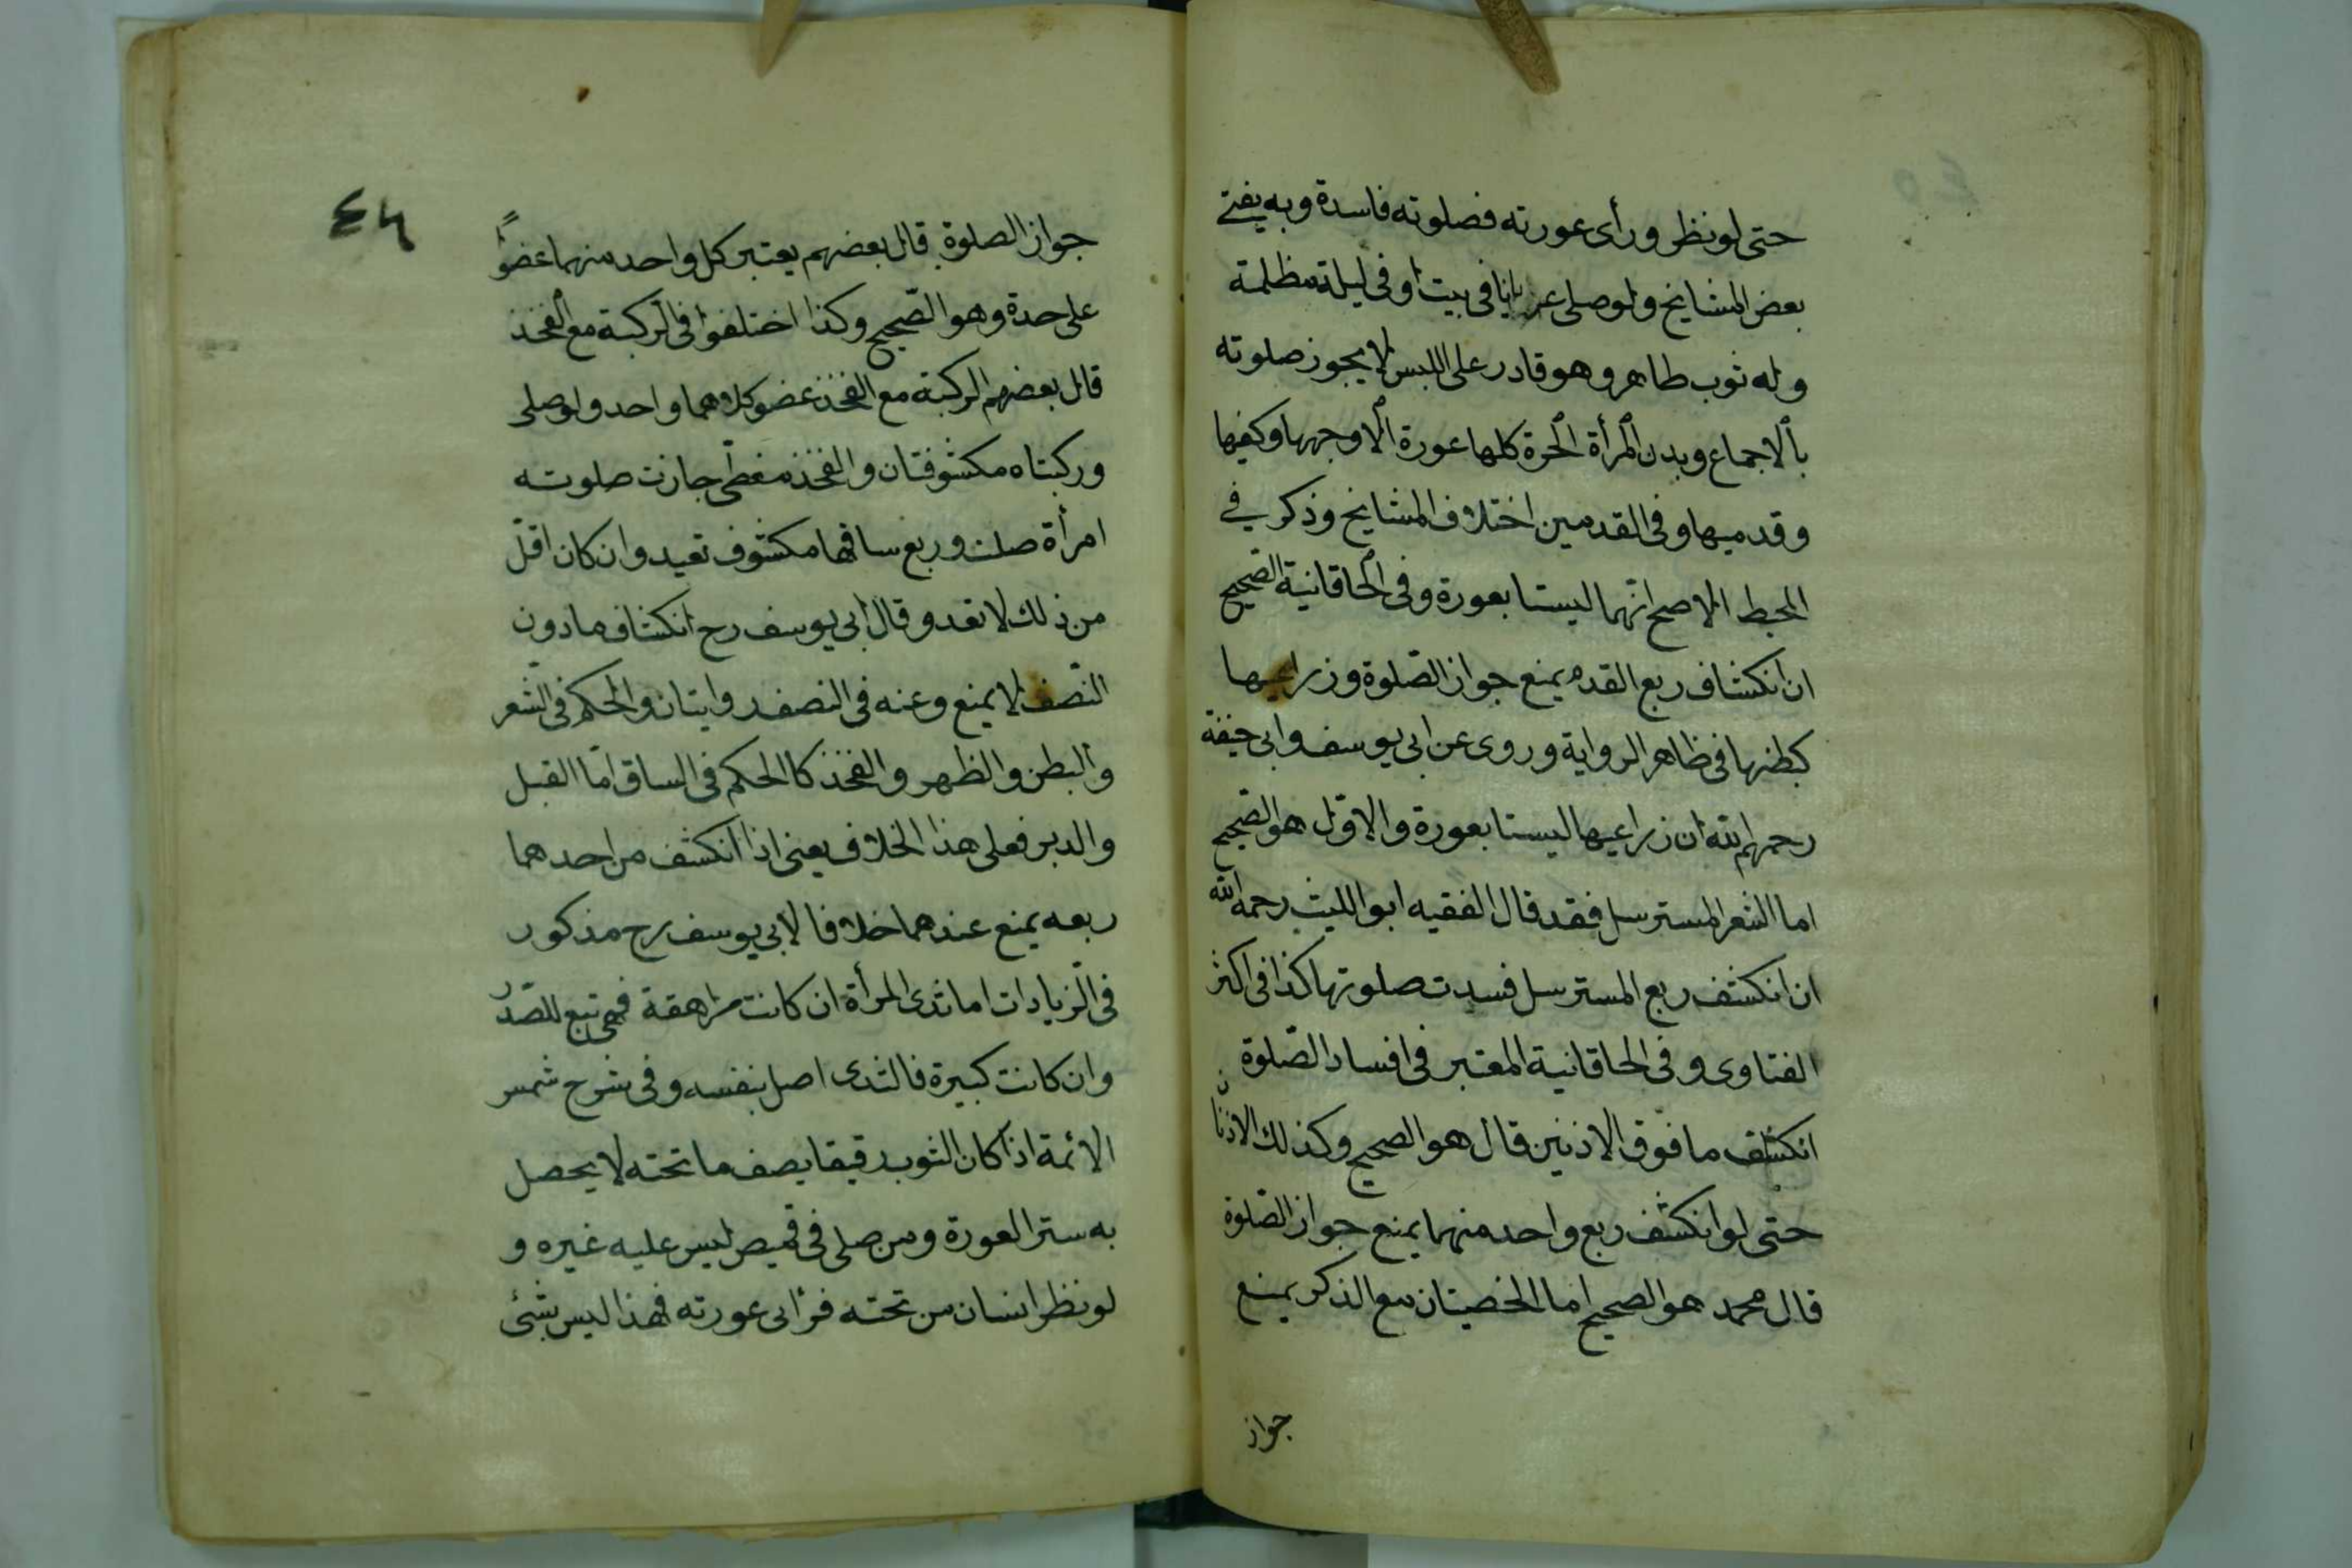 حتى لو نظر ورأى عورته فصلوته فاسدة وبه يفتى
بعض المشايخ ولو صلى عريانا فى بيت او فى ليلة مظلمة
وله ثوب طاهر وهو قادر على اللبس لا يجوز صلوته
بالاجماع وبدن المرأة الحرة كلها عورة الا وجهها وكفيها
وقدميها وفى القدمين اختلاف المشايخ وذكر فى
المحيط الاصح انهما ليستا بعورة وفى الخاقانية الصحيح
ان انكشاف ربع القدم يمنع جواز الصّلوة وزراعيها
كبطنها فى ظاهر الرواية وروى عن ابى يوسف وابى حنيفة
رحمهم الله ان زراعيها ليستا بعورة والاوّل هو الصّحيح
اما الشعر المسترسل فقد قال الفقيه ابو الليث رحمه الله
ان انكشف ربع المسترسل فسدت صلوتها كذا فى اكثر
الفتاوى وفى الخاقانية المعتبر فى افساد الصّلوة
انكشف ما فوق الاذنين قال هو الصحيح وكذلك الاذنان
حتى لو انكشف ربع واحد منهما يمنع جواز الصّلوة
قال محمد هو الصحيح اما الخصيتان مع الذكر يمنع
جواز
٤٦
جواز الصلوة قال بعضهم يعتبر كل واحد منهما عضوًا
على حدة وهو الصّحيح وكذا اختلفوا فى الركبة مع الفخذ
قال بعضهم الركبة مع الفخذ عضو كلاهما واحد ولو صلى
وركبتاه مكشوفتان والفخذ مغطى جازت صلوته
امرأة صلت وربع ساقها مكشوف تعيد وان كان اقلّ
من ذلك لا تعد وقال ابى يوسف رح انكشاف ما دون
النّصف لا يمنع وعنه فى النصف روايتان والحكم فى الشعر
والبطن والظهر والفخذ كالحكم فى الساق امّا القبل
والدبر فعلى هذا الخلاف يعنى اذا انكشف من احدهما
ربعه يمنع عندهما خلافا لابى يوسف رح مذكور
فى الزّيادات اما ثدى المرأة ان كانت مراهقة فهى تبع للصّدر
وان كانت كبيرة فالثدى اصل بنفسه وفى شرح شمس
الائمة اذا كان الثوب رقيقا يصف ما تحته لا يحصل
به ستر العورة ومن صلى فى قميص ليس عليه غيره و
لو نظر انسان من تحته فرأى عورته فهذا ليس بشئ